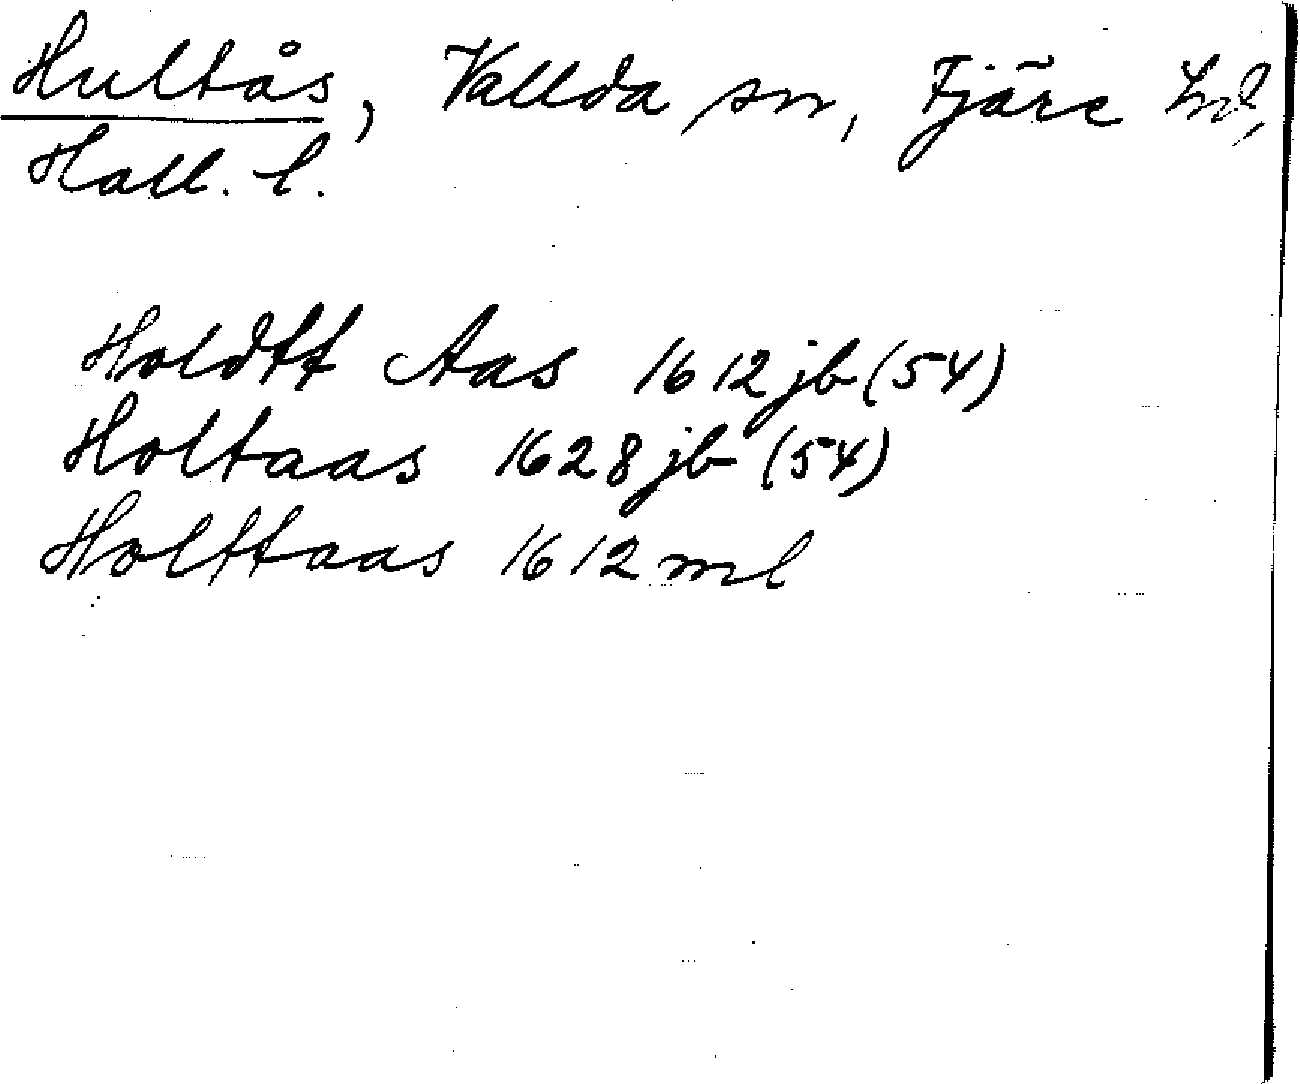 Hultås, Vallda sn, Fjäre hd,
Hall. l.
Holdtt Aas 1612 jb (54)
Holtaas 1628 jb (54)
Holttaas 1612 ml